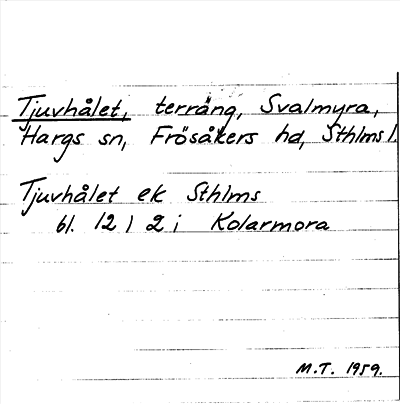 Tjuvhålet, terräng, Svalmyra,
Hargs sn, Frösåkers hd, Sthlms l.
Tjuvhålet ek Sthlms
bl. 12 i 2 i Kolarmora
M.T. 1959.